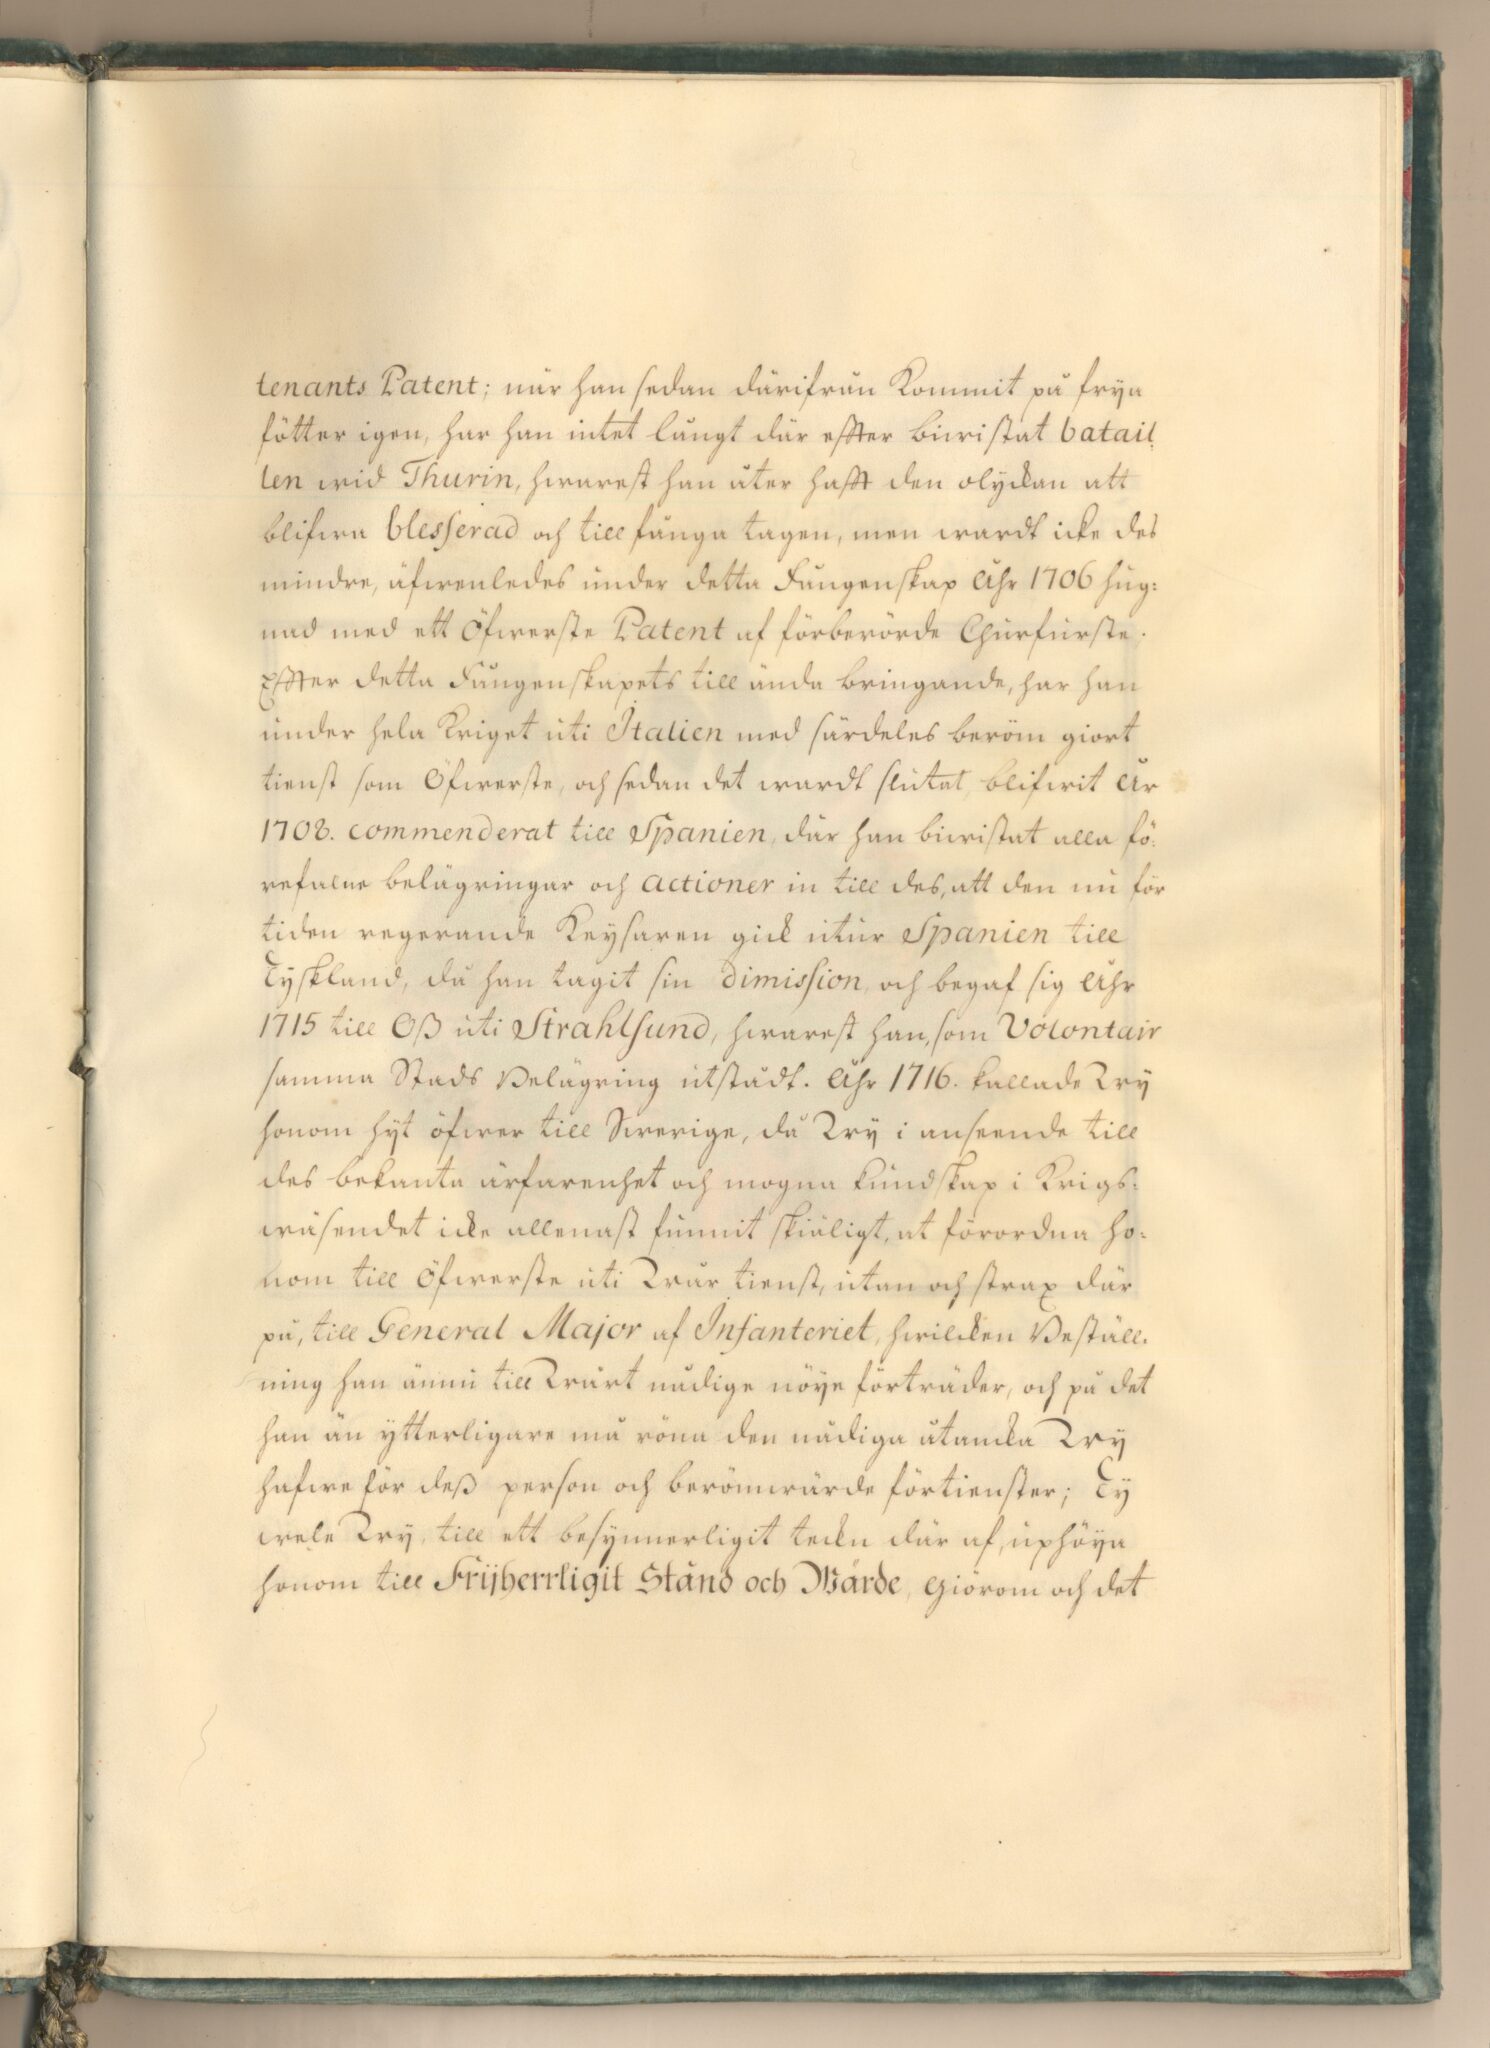 tenants Patent; när han sedan därifrån Kommit på frya
fötter igen, har han intet långt där effter biwistat batail:
len wid Thurin, hwarest han åter hafft den olyckan att
blifwa blesserad och till fånga tagen, men wardt icke des
mindre, äfwenledes under detta Fångenskap Åhr 1706 hug:
nad med ett Öfwerste Patent af förberörde Churfurste.
Effter detta Fångenskapets till ända bringande, har han
under hela Kriget uti Italien med särdeles beröm giort
tienst som Öfwerste, och sedan det wardt slutat, blifwit År
1708. commenderat till Spanien, där han biwistat alla fö:
refalne belägringar och actioner in till des, att den nu för
tiden regerande Keysaren gick utur Spanien till
Tyskland, då han tagit sin dimission, och begaf sig Åhr
1715 till Oß uti Strahlsund, hwarest han, som Volontair
samma Stads Belägring utstådt. Åhr 1716. kallade Wy
honom hyt öfwer till Swerige, då Wy i anseende till
des bekanta ärfarenhet och mogna kundskap i Krigs:
wäsendet icke allenast funnit skiäligt, at förordna ho:
nom till Öfwerste uti Wår tienst, utan och strax där
på, till General Major af Infanteriet, hwilcken Beställ:
ning han ännu till Wårt nådige nöye förträder, och på det
han än ytterligare må röna den nådiga åtancka Wy
hafwe för deß person och berömwärde förtienster; Ty
wele Wy, till ett besynnerligit teckn där af, uphöya
honom till Frijherrligit Stånd och Wärde, Giörom och det